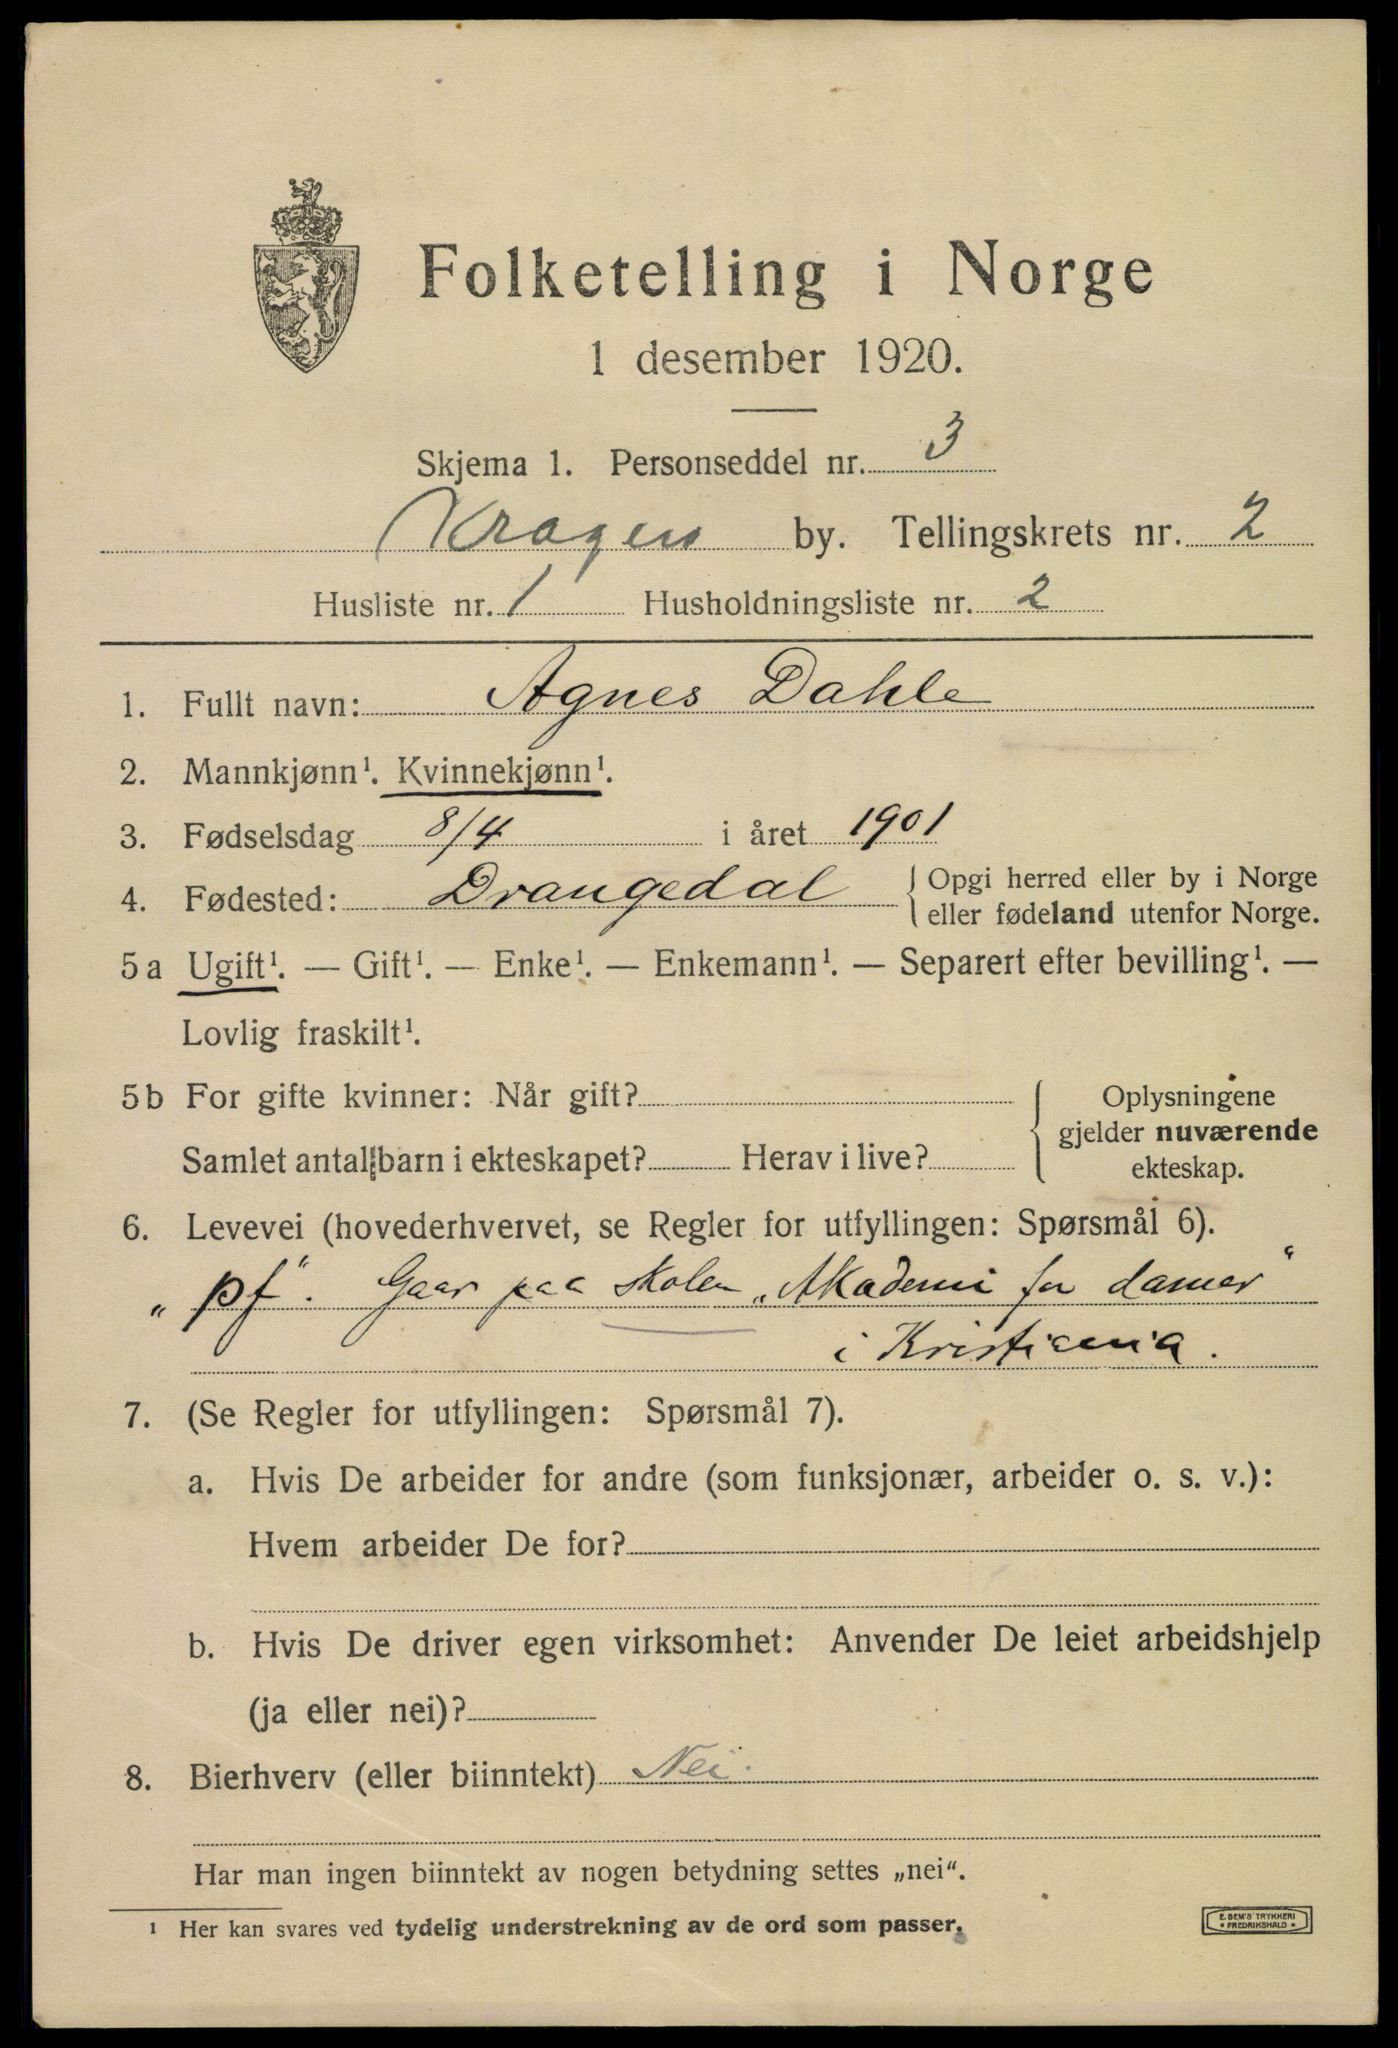 Folketelling i Norge
1 desember 1920.
Skjema 1. Personseddel nr. 3
Kragerø by. Tellingskrets nr. 2
Husliste nr. 1 Husholdningsliste nr. 2
1. Fullt navn: Agnes Dahle
2. Mannkjønn¹. Kvinnekjønn¹.
3. Fødselsdag 8/4 i året 1901
4. Fødested: Drangedal { Opgi herred eller by i Norge
eller fødeland utenfor Norge.
5a Ugift¹. — Gift¹. — Enke¹. — Enkemann¹. — Separert efter bevilling¹. —
Lovlig fraskilt¹.
5b For gifte kvinner: Når gift? { Oplysningene
gjelder nuværende
Samlet antal barn i ekteskapet? Herav i live? ekteskap.
6. Levevei (hovederhvervet, se Regler for utfyllingen: Spørsmål 6).
„pf“. Gaar paa skolen „Akademi for damer“
i Kristiania.
7. (Se Regler for utfyllingen: Spørsmål 7).
a. Hvis De arbeider for andre (som funksjonær, arbeider o. s. v.):
Hvem arbeider De for?
b. Hvis De driver egen virksomhet: Anvender De leiet arbeidshjelp
(ja eller nei)?
8. Bierhverv (eller biinntekt) Nei.
Har man ingen biinntekt av nogen betydning settes „nei“.
¹ Her kan svares ved tydelig understrekning av de ord som passer.
E. SEM'S TRYKKERI
* FREDRIKSHALD *